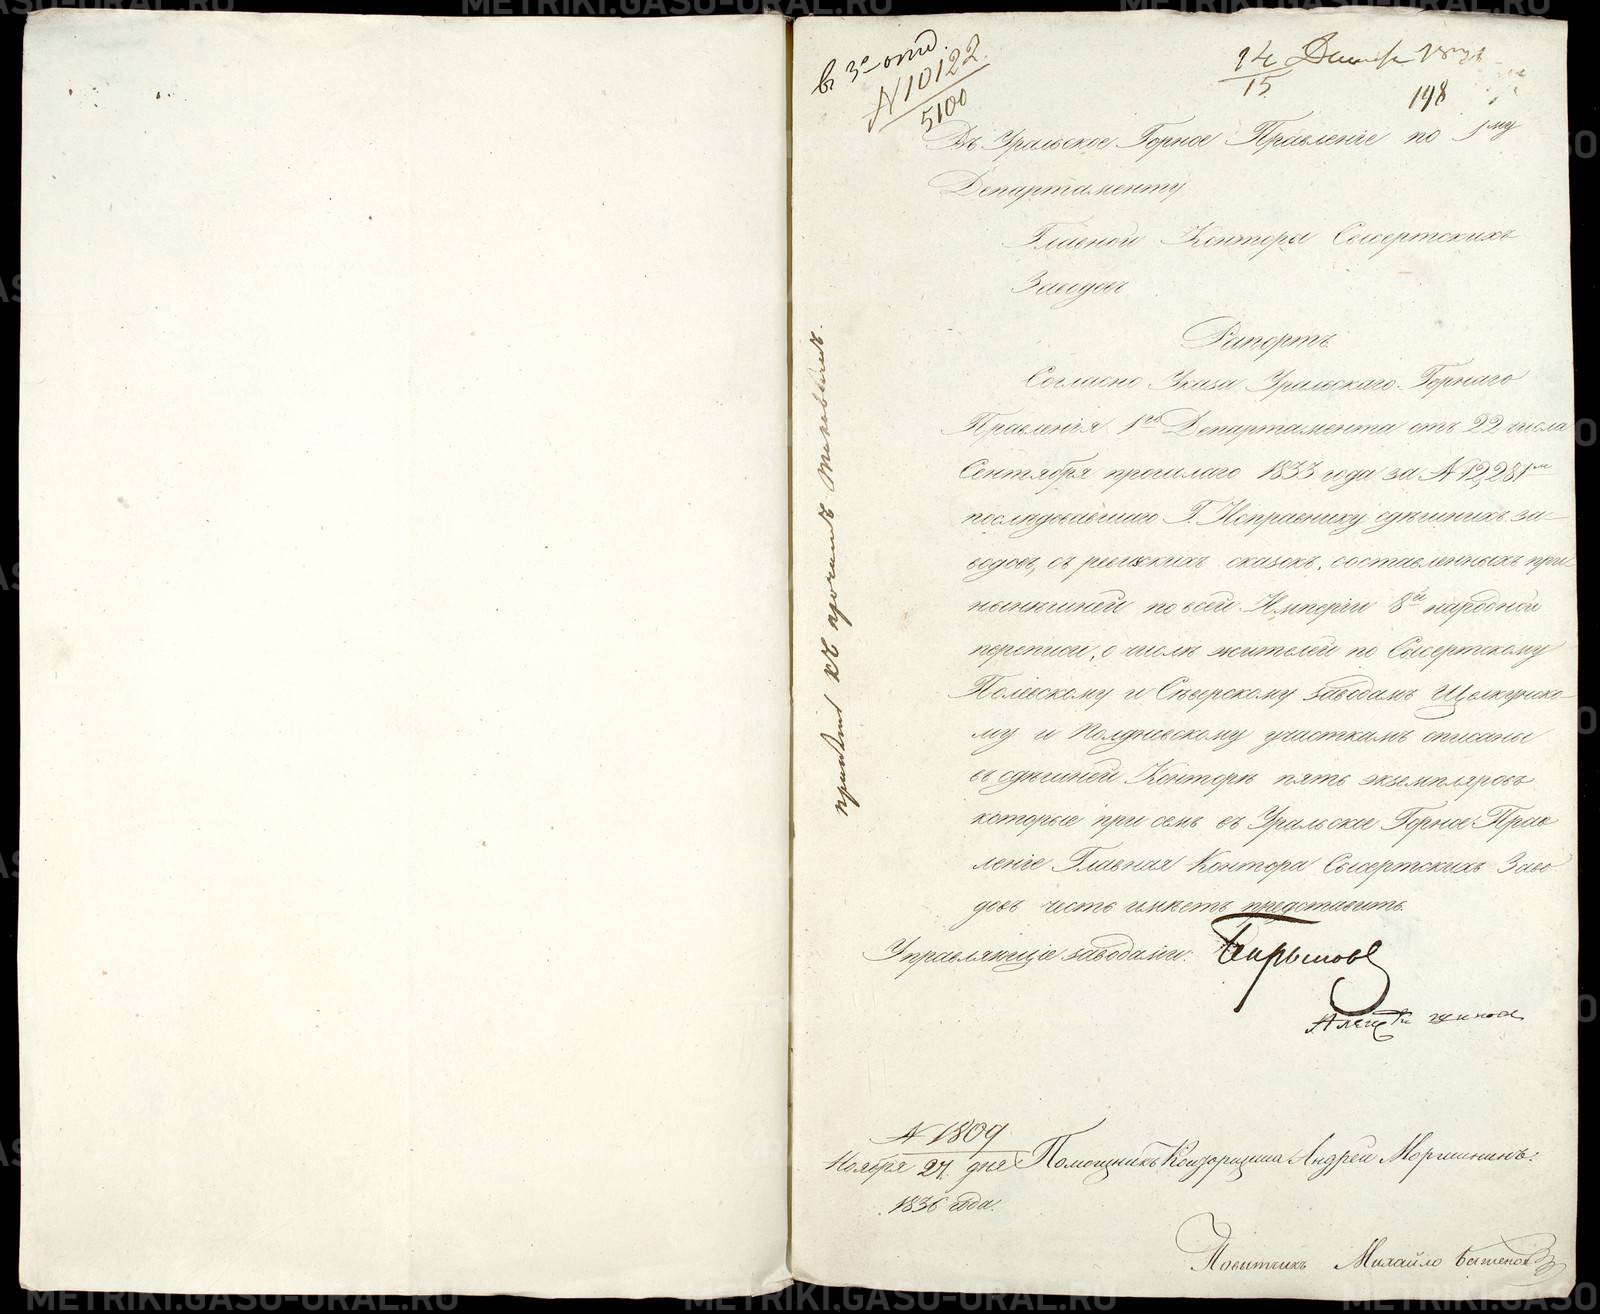 в 3е отд.
№ 10122
5100
14
15
198
Въ Уральское Горное Правленіе по 1му
Департаменту
Главной Конторы Сысертскихъ
Заводовъ
Рапортъ
Согласно Указа Уральскаго Горнаго
Правленія 1го Департамента отъ 22 числа
Сентября прошлаго 1833 года за № 12,281м
послѣдовавшаго Г. Исправнику здѣшнихъ за-
водовъ, съ ревизскихъ сказокъ, составленныхъ при
нынѣшней по всей Имперіи 8й народной
переписи, о числѣ жителей по Сысертскому
Полевскому и Сѣверскому заводамъ Щелкунско-
му и Полдневскому участкамъ списаны
въ здѣшней Конторѣ пять экземпляровъ
которые при семъ въ Уральское Горное Прав
леніе Главная Контора Сысертскихъ Заво
довъ честь имѣетъ представить.
Управляющіе заводами:
№ 1809
Ноября 27. дня Помощникъ Андрей
1836 года.
Повытчикъ Михайло
къ прочимъ таковымъ.
METRIKI.GASU-URAL.RU